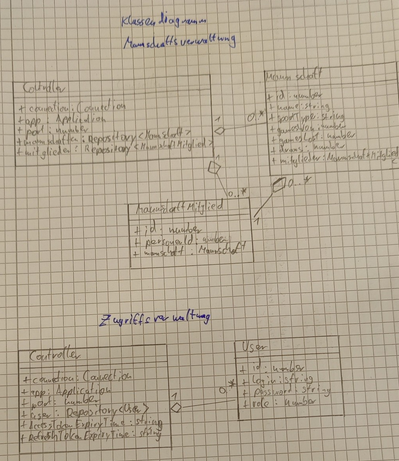 Klassendiagramm
Mannschaftsverwaltung
Controller
+ connection: Connection
+ app: Application
+ port: number
+ mannschaften: Repository <Mannschaft>
+ mitglieder: Repository <MannschaftMitglied>
1
0..*
Mannschaft
+ id: number
+ name: string
+ sportType: string
+ gamesWon: number
+ gamesLost: number
+ : number
+ mitglieder: MannschaftMitglied
0..*
0..*
1
MannschaftMitglied
+ id: number
+ personId: number
+ mannschaft: Mannschaft
Zugriffsverwaltung
Controller
+ connection: Connection
+ app: Application
+ port: number
+ user: Repository <User>
+ AccessTokenExpiryTime: string
+ RefreshTokenExpiryTime: string
1
0..*
User
+ id: number
+ Login: string
+ password: string
+ role: number